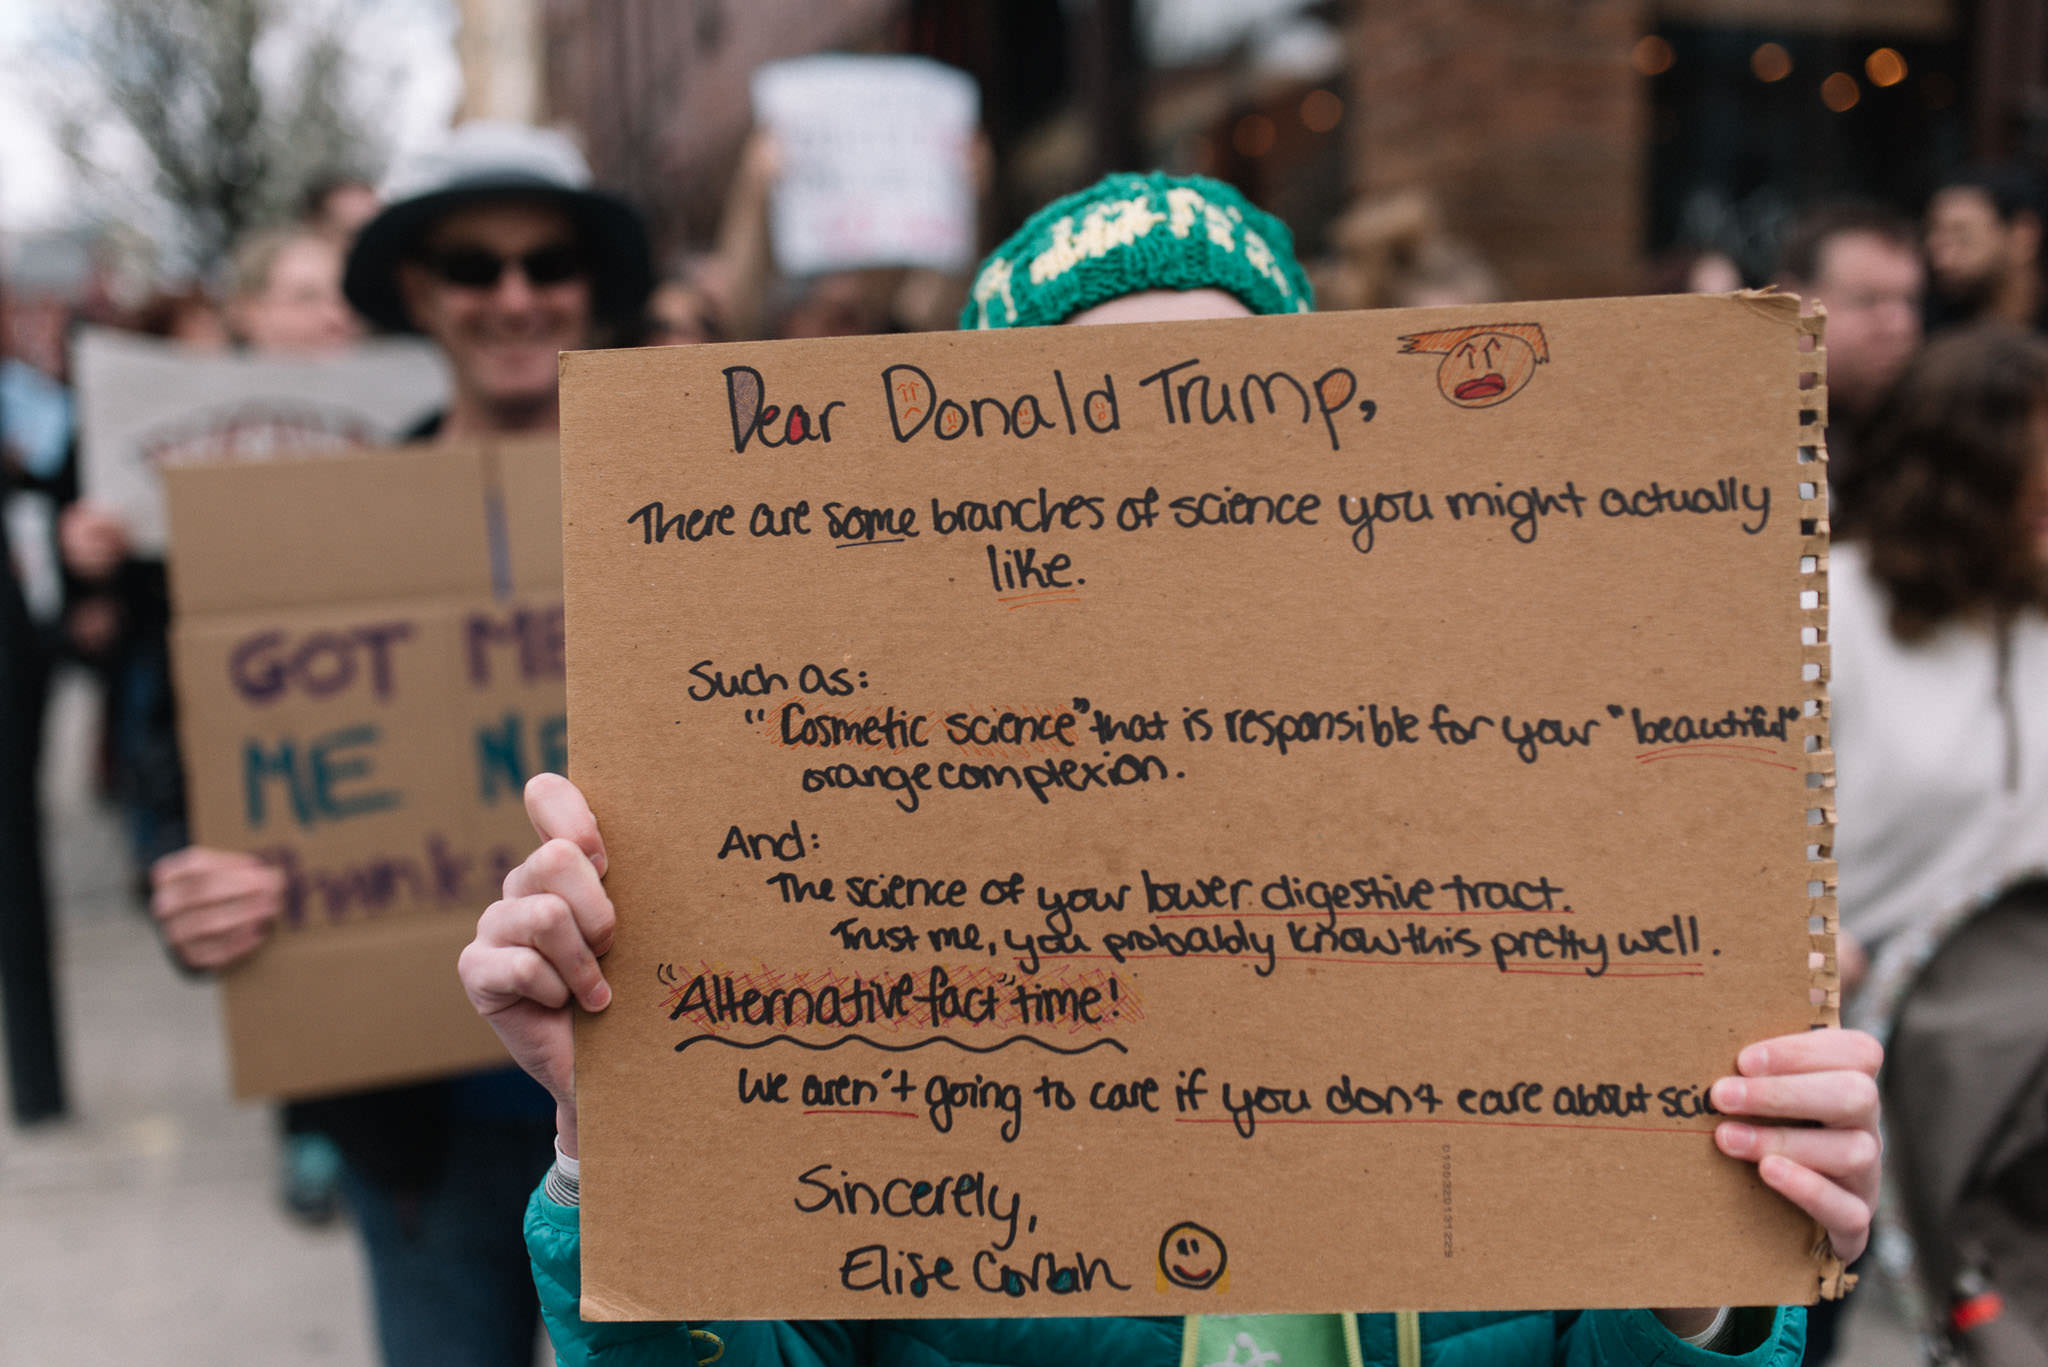 Dear Donald Trump,
There are some branches of science you might actually
like.
Such as:
"Cosmetic science" that is responsible for your "beautiful"
orange complexion.
And:
The science of your lower digestive tract.
Trust me, you probably know this pretty well.
"Alternative fact" time!
We aren't going to care if you don't care about scie
Sincerely,
Elise Corbin
GOT ME
ME NE
Thanks